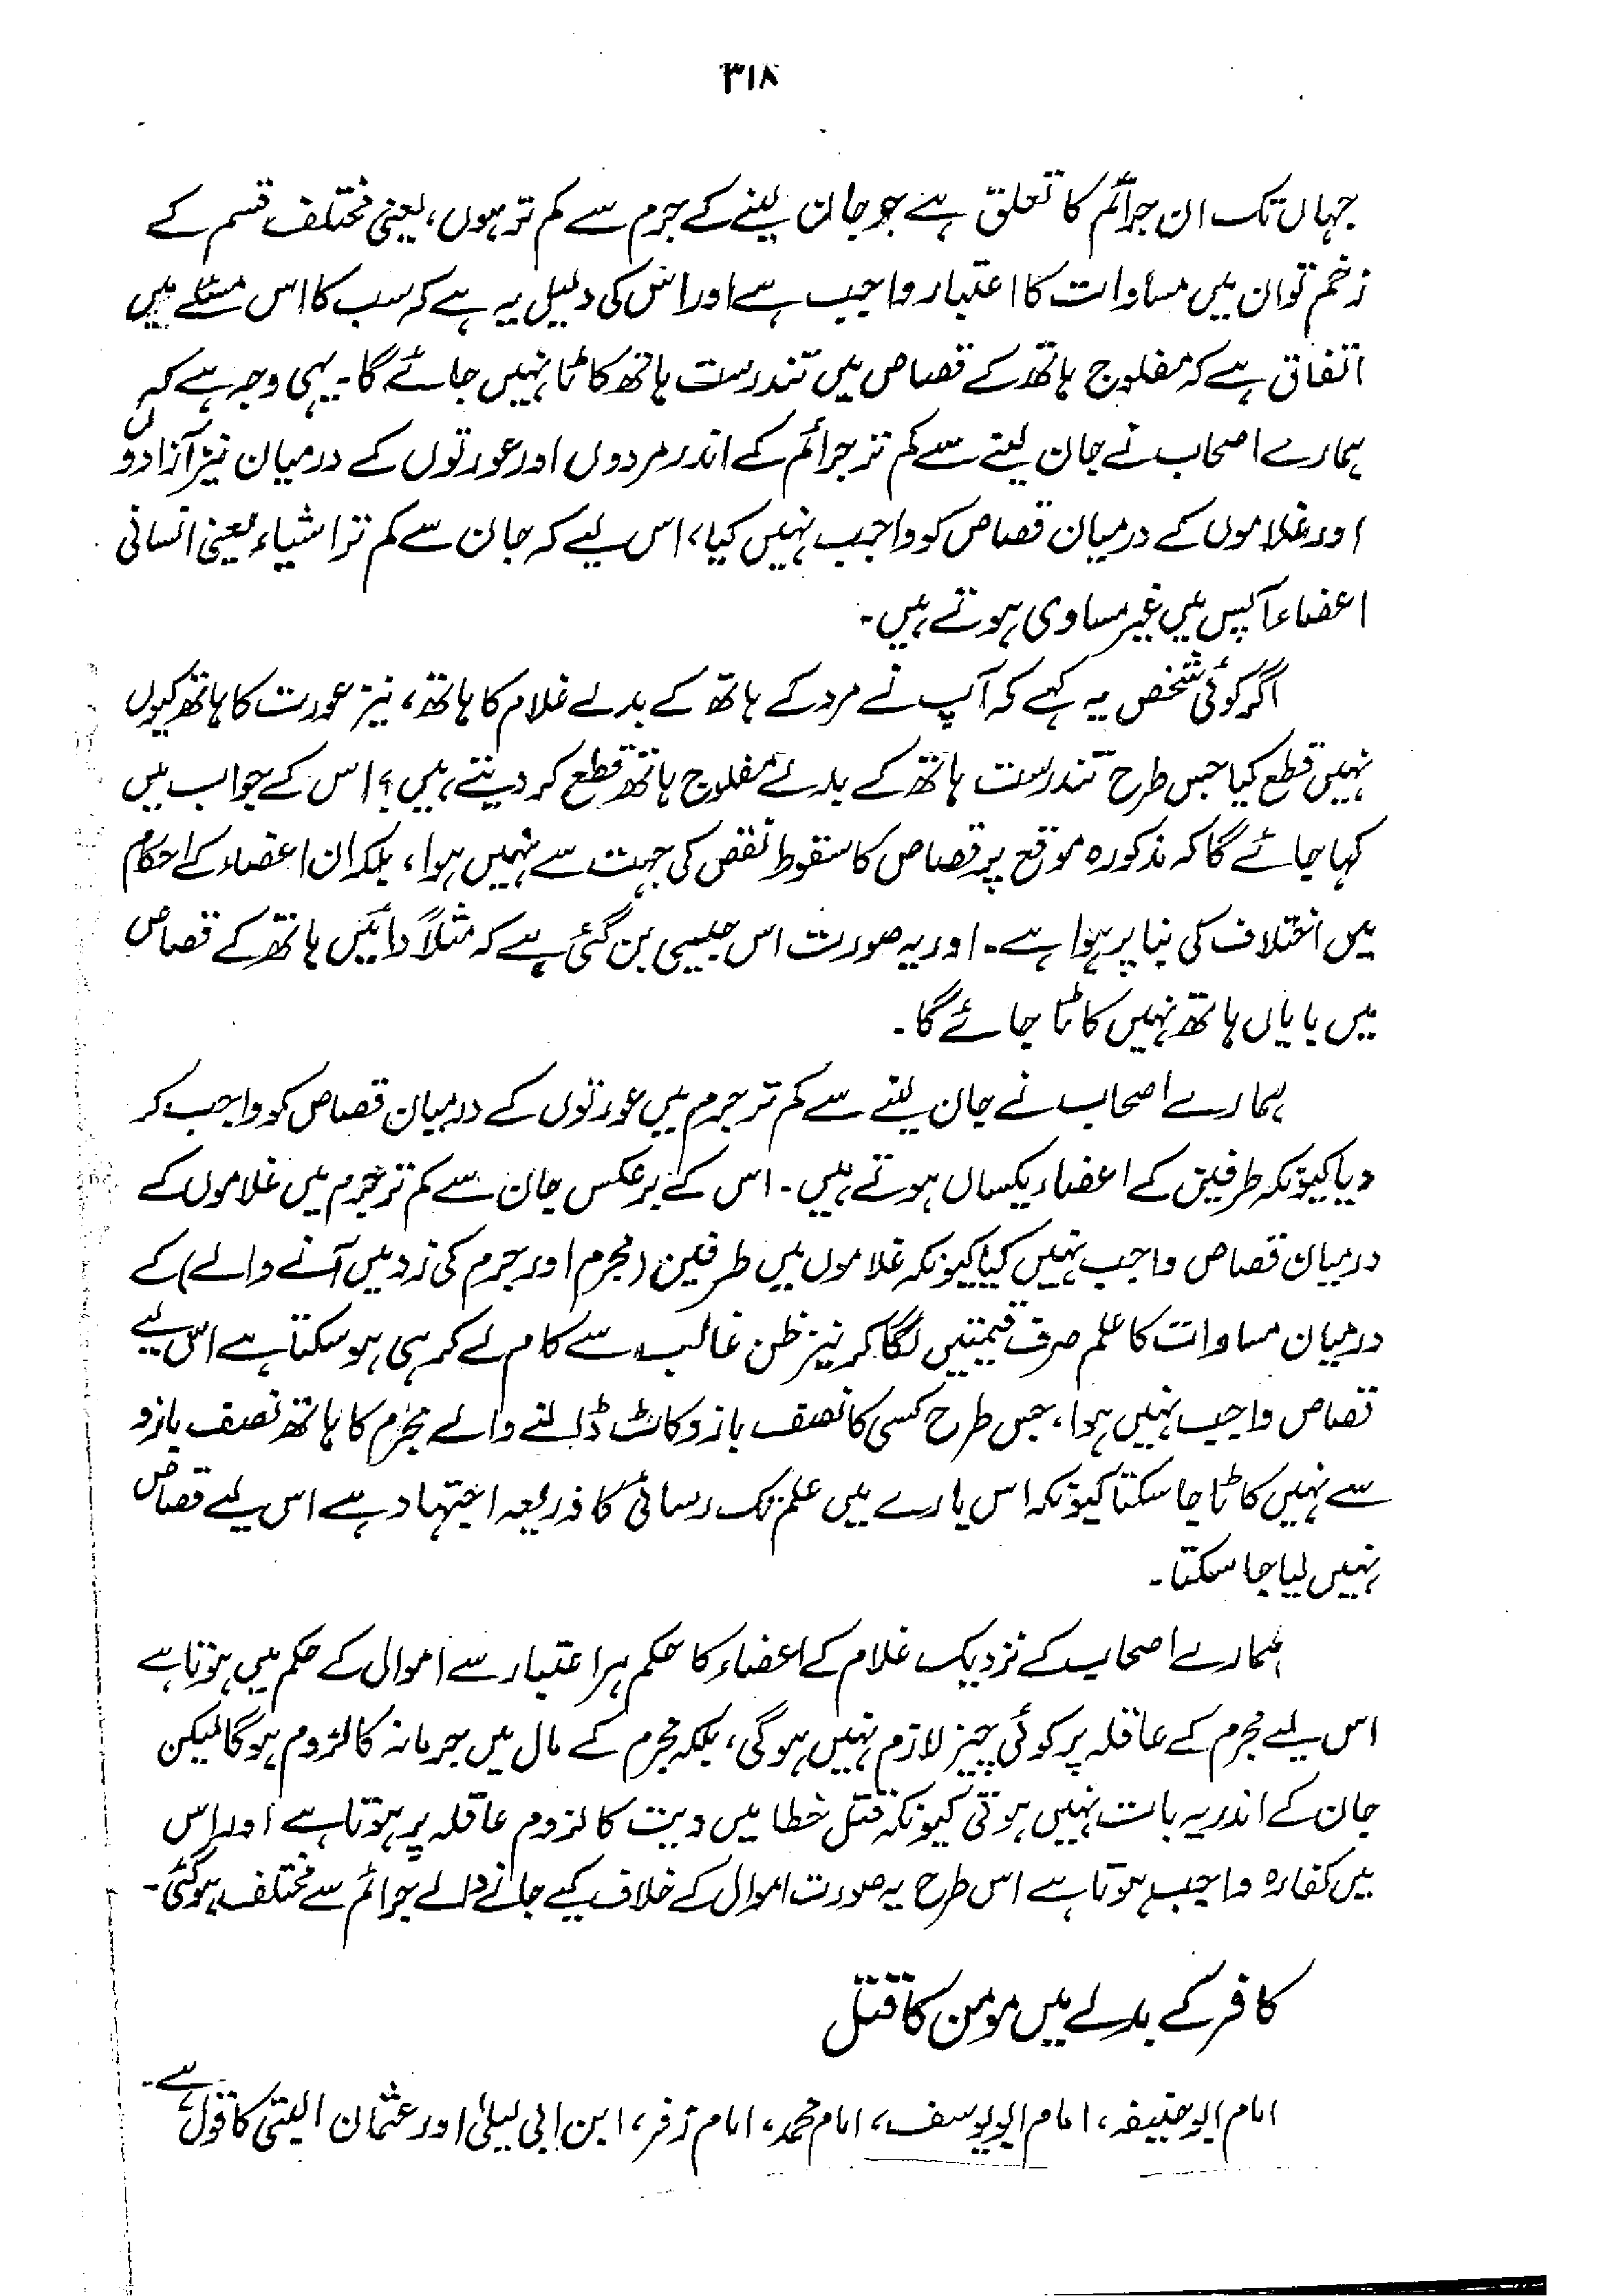 ۳۱۸
جہاں تک ان جرائم کا تعلق ہے جو جان لینے کے جرم سے کم تر ہوں، یعنی مختلف قسم کے
زخم تو ان میں مساوات کا اعتبار واجب ہے اور اس کی دلیل یہ ہے کہ سب کا اس مسئلے میں
اتفاق ہے کہ مفلوج ہاتھ کے قصاص میں تندرست ہاتھ کاٹا نہیں جائے گا۔ یہی وجہ ہے کہ
ہمارے اصحاب نے جان لینے سے کم تر جرائم کے اندر مردوں اور عورتوں کے درمیان نیز آزادوں
اور غلاموں کے درمیان قصاص کو واجب نہیں کیا، اس لیے کہ جان سے کم تر اشیاء یعنی انسانی
اعضاء آپس میں غیر مساوی ہوتے ہیں۔
اگر کوئی شخص یہ کہے کہ آپ نے مرد کے ہاتھ کے بدلے غلام کا ہاتھ، نیز عورت کا ہاتھ کیوں
نہیں قطع کیا جس طرح تندرست ہاتھ کے بدلے مفلوج ہاتھ قطع کر دیتے ہیں؟ اس کے جواب میں
کہا جائے گا کہ مذکورہ موقع پر قصاص کا سقوط نقص کی جہت سے نہیں ہوا، بلکہ ان اعضاء کے احکام
میں اختلاف کی بنا پر ہوا ہے۔ اور یہ صورت اس جیسی بن گئی ہے کہ مثلاً دائیں ہاتھ کے قصاص
میں بایاں ہاتھ نہیں کاٹا جائے گا۔
ہمارے اصحاب نے جان لینے سے کم تر جرم میں عورتوں کے درمیان قصاص کو واجب کر
دیا کیونکہ طرفین کے اعضاء یکساں ہوتے ہیں۔ اس کے برعکس جان سے کم تر جرم میں غلاموں کے
درمیان قصاص واجب نہیں کیا کیونکہ غلاموں میں طرفین (مجرم اور جرم کی زد میں آنے والے) کے
درمیان مساوات کا علم صرف قیمتیں لگا کر نیز ظن غالب سے کام لے کر ہی ہو سکتا ہے اس لیے
قصاص واجب نہیں ہوا، جس طرح کسی کا نصف بازو کاٹ ڈالنے والے مجرم کا ہاتھ نصف بازو
سے نہیں کاٹا جا سکتا کیونکہ اس بارے میں علم تک رسائی کا ذریعہ اجتہاد ہے اس لیے قصاص
نہیں لیا جا سکتا۔
ہمارے اصحاب کے نزدیک غلام کے اعضاء کا حکم ہر اعتبار سے اموال کے حکم میں ہوتا ہے
اس لیے مجرم کے عاقلہ پر کوئی چیز لازم نہیں ہوگی، بلکہ مجرم کے مال میں جرمانہ کا لزوم ہوگا لیکن
جان کے اندر یہ بات نہیں ہوتی کیونکہ قتل خطا میں دیت کا لزوم عاقلہ پر ہوتا ہے اور اس
میں کفارہ واجب ہوتا ہے اس طرح یہ صورت اموال کے خلاف کیے جانے والے جرائم سے مختلف ہوگئی۔
کافر کے بدلے میں مومن کا قتل
امام ابو حنیفہ، امام ابو یوسف، امام محمد، امام زفر، ابن ابی لیلیٰ اور عثمان البتی کا قول ہے۔